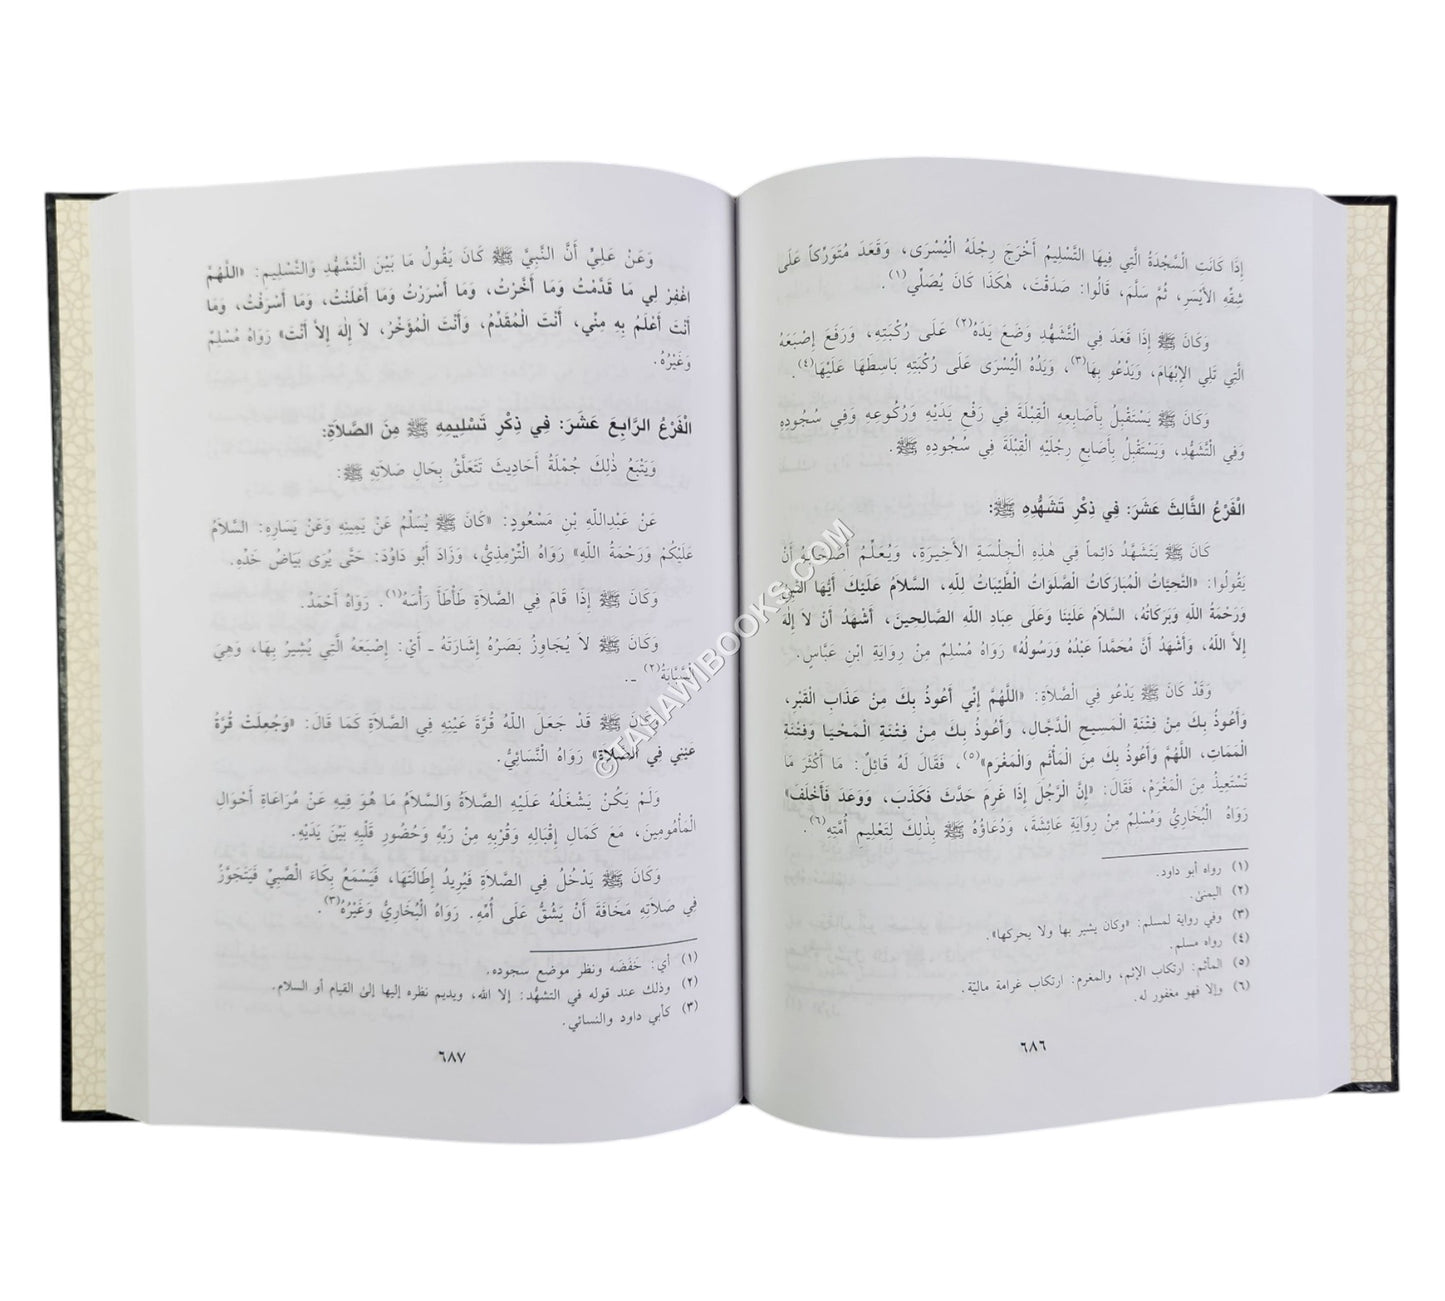 إِذَا كَانَتِ السَّجْدَةُ الَّتِي فِيهَا التَّسْلِيمُ أَخْرَجَ رِجْلَهُ الْيُسْرَى، وَقَعَدَ مُتَوَرِّكاً عَلَى
شِقِّهِ الأَيْسَرِ، ثُمَّ سَلَّمَ، قَالُوا: صَدَقْتَ، هٰكَذَا كَانَ يُصَلِّي(١).
وَكَانَ ﷺ إِذَا قَعَدَ فِي التَّشَهُّدِ وَضَعَ يَدَهُ(٢) عَلَى رُكْبَتِهِ، وَرَفَعَ إِصْبَعَهُ
الَّتِي تَلِي الإِبْهَامَ، وَيَدْعُو بِهَا(٣)، وَيَدُهُ الْيُسْرَى عَلَى رُكْبَتِهِ بَاسِطَهَا عَلَيْهَا(٤).
وَكَانَ ﷺ يَسْتَقْبِلُ بِأَصَابِعِهِ الْقِبْلَةَ فِي رَفْعِ يَدَيْهِ وَرُكُوعِهِ وَفِي سُجُودِهِ
وَفِي التَّشَهُّدِ، وَيَسْتَقْبِلُ بِأَصَابِعِ رِجْلَيْهِ الْقِبْلَةَ فِي سُجُودِهِ ﷺ.
الْفَرْعُ الثَّالِثَ عَشَرَ: فِي ذِكْرِ تَشَهُّدِهِ ﷺ:
كَانَ ﷺ يَتَشَهَّدُ دَائِماً فِي هٰذِهِ الْجِلْسَةِ الأَخِيرَةِ، وَيُعَلِّمُ أَصْحَابَهُ أَنْ
يَقُولُوا: «التَّحِيَّاتُ الْمُبَارَكَاتُ الصَّلَوَاتُ الطَّيِّبَاتُ لِلَّهِ، السَّلاَمُ عَلَيْكَ أَيُّهَا النَّبِيُّ
وَرَحْمَةُ اللَّهِ وَبَرَكَاتُهُ، السَّلاَمُ عَلَيْنَا وَعَلَى عِبَادِ اللَّهِ الصَّالِحِينَ، أَشْهَدُ أَنْ لاَ إِلٰهَ
إِلاَّ اللَّهُ، وَأَشْهَدُ أَنَّ مُحَمَّداً عَبْدُهُ وَرَسُولُهُ» رَوَاهُ مُسْلِمٌ مِنْ رِوَايَةِ ابْنِ عَبَّاسٍ.
وَقَدْ كَانَ ﷺ يَدْعُو فِي الصَّلاَةِ: «اللَّهُمَّ إِنِّي أَعُوذُ بِكَ مِنْ عَذَابِ الْقَبْرِ،
وَأَعُوذُ بِكَ مِنْ فِتْنَةِ الْمَسِيحِ الدَّجَّالِ، وَأَعُوذُ بِكَ مِنْ فِتْنَةِ الْمَحْيَا وَفِتْنَةِ
الْمَمَاتِ، اللَّهُمَّ وَأَعُوذُ بِكَ مِنَ الْمَأْثَمِ وَالْمَغْرَمِ»(٥)، فَقَالَ لَهُ قَائِلٌ: مَا أَكْثَرَ مَا
تَسْتَعِيذُ مِنَ الْمَغْرَمِ، فَقَالَ: «إِنَّ الرَّجُلَ إِذَا غَرِمَ حَدَّثَ فَكَذَبَ، وَوَعَدَ فَأَخْلَفَ»
رَوَاهُ الْبُخَارِيُّ وَمُسْلِمٌ مِنْ رِوَايَةِ عَائِشَةَ، وَدُعَاؤُهُ ﷺ بِذٰلِكَ لِتَعْلِيمِ أُمَّتِهِ(٦).
(١) رواه أبو داود.
(٢) اليمنىٰ.
(٣) وفي رواية لمسلم: «وكان يشير بها ولا يحركها».
(٤) رواه مسلم.
(٥) المأثم: ارتكاب الإثم، والمغرم: ارتكاب غرامة ماليّة.
(٦) وإلا فهو مغفور له.
٦٨٦
وَعَنْ عَلِيٍّ أَنَّ النَّبِيَّ ﷺ كَانَ يَقُولُ مَا بَيْنَ التَّشَهُّدِ وَالتَّسْلِيمِ: «اللَّهُمَّ
اغْفِرْ لِي مَا قَدَّمْتُ وَمَا أَخَّرْتُ، وَمَا أَسْرَرْتُ وَمَا أَعْلَنْتُ، وَمَا أَسْرَفْتُ، وَمَا
أَنْتَ أَعْلَمُ بِهِ مِنِّي، أَنْتَ الْمُقَدِّمُ، وَأَنْتَ الْمُؤَخِّرُ، لاَ إِلٰهَ إِلاَّ أَنْتَ» رَوَاهُ مُسْلِمٌ
وَغَيْرُهُ.
الْفَرْعُ الرَّابِعَ عَشَرَ: فِي ذِكْرِ تَسْلِيمِهِ ﷺ مِنَ الصَّلاَةِ:
وَيَتْبَعُ ذٰلِكَ جُمْلَةُ أَحَادِيثَ تَتَعَلَّقُ بِحَالِ صَلاَتِهِ ﷺ:
عَنْ عَبْدِاللَّهِ بْنِ مَسْعُودٍ: «كَانَ ﷺ يُسَلِّمُ عَنْ يَمِينِهِ وَعَنْ يَسَارِهِ: السَّلاَمُ
عَلَيْكُمْ وَرَحْمَةُ اللَّهِ» رَوَاهُ التِّرْمِذِيُّ، وَزَادَ أَبُو دَاوُدَ: حَتَّى يُرَى بَيَاضُ خَدِّهِ.
وَكَانَ ﷺ إِذَا قَامَ فِي الصَّلاَةِ طَأْطَأَ رَأْسَهُ(١). رَوَاهُ أَحْمَدُ.
وَكَانَ ﷺ لاَ يُجَاوِزُ بَصَرُهُ إِشَارَتَهُ ـ أَيْ: إِصْبَعَهُ الَّتِي يُشِيرُ بِهَا، وَهِيَ
السَّبَّابَةُ(٢) ـ.
وَكَانَ ﷺ قَدْ جَعَلَ اللَّهُ قُرَّةَ عَيْنِهِ فِي الصَّلاَةِ كَمَا قَالَ: «وَجُعِلَتْ قُرَّةُ
عَيْنِي فِي الصَّلاَةِ» رَوَاهُ النَّسَائِيُّ.
وَلَمْ يَكُنْ يَشْغَلُهُ عَلَيْهِ الصَّلاَةُ وَالسَّلاَمُ مَا هُوَ فِيهِ عَنْ مُرَاعَاةِ أَحْوَالِ
الْمَأْمُومِينَ، مَعَ كَمَالِ إِقْبَالِهِ وَقُرْبِهِ مِنْ رَبِّهِ وَحُضُورِ قَلْبِهِ بَيْنَ يَدَيْهِ.
وَكَانَ ﷺ يَدْخُلُ فِي الصَّلاَةِ فَيُرِيدُ إِطَالَتَهَا، فَيَسْمَعُ بِكَاءَ الصَّبِيِّ فَيَتَجَوَّزُ
فِي صَلاَتِهِ مَخَافَةَ أَنْ يَشُقَّ عَلَى أُمِّهِ. رَوَاهُ الْبُخَارِيُّ وَغَيْرُهُ(٣).
(١) أي: خَفَضَه ونظر موضع سجوده.
(٢) وذلك عند قوله في التشهُّد: إلا الله، ويديم نظره إليها إلىٰ القيام أو السلام.
(٣) كأبي داود والنسائي.
٦٨٧
©TAHAWIBOOKS.COM